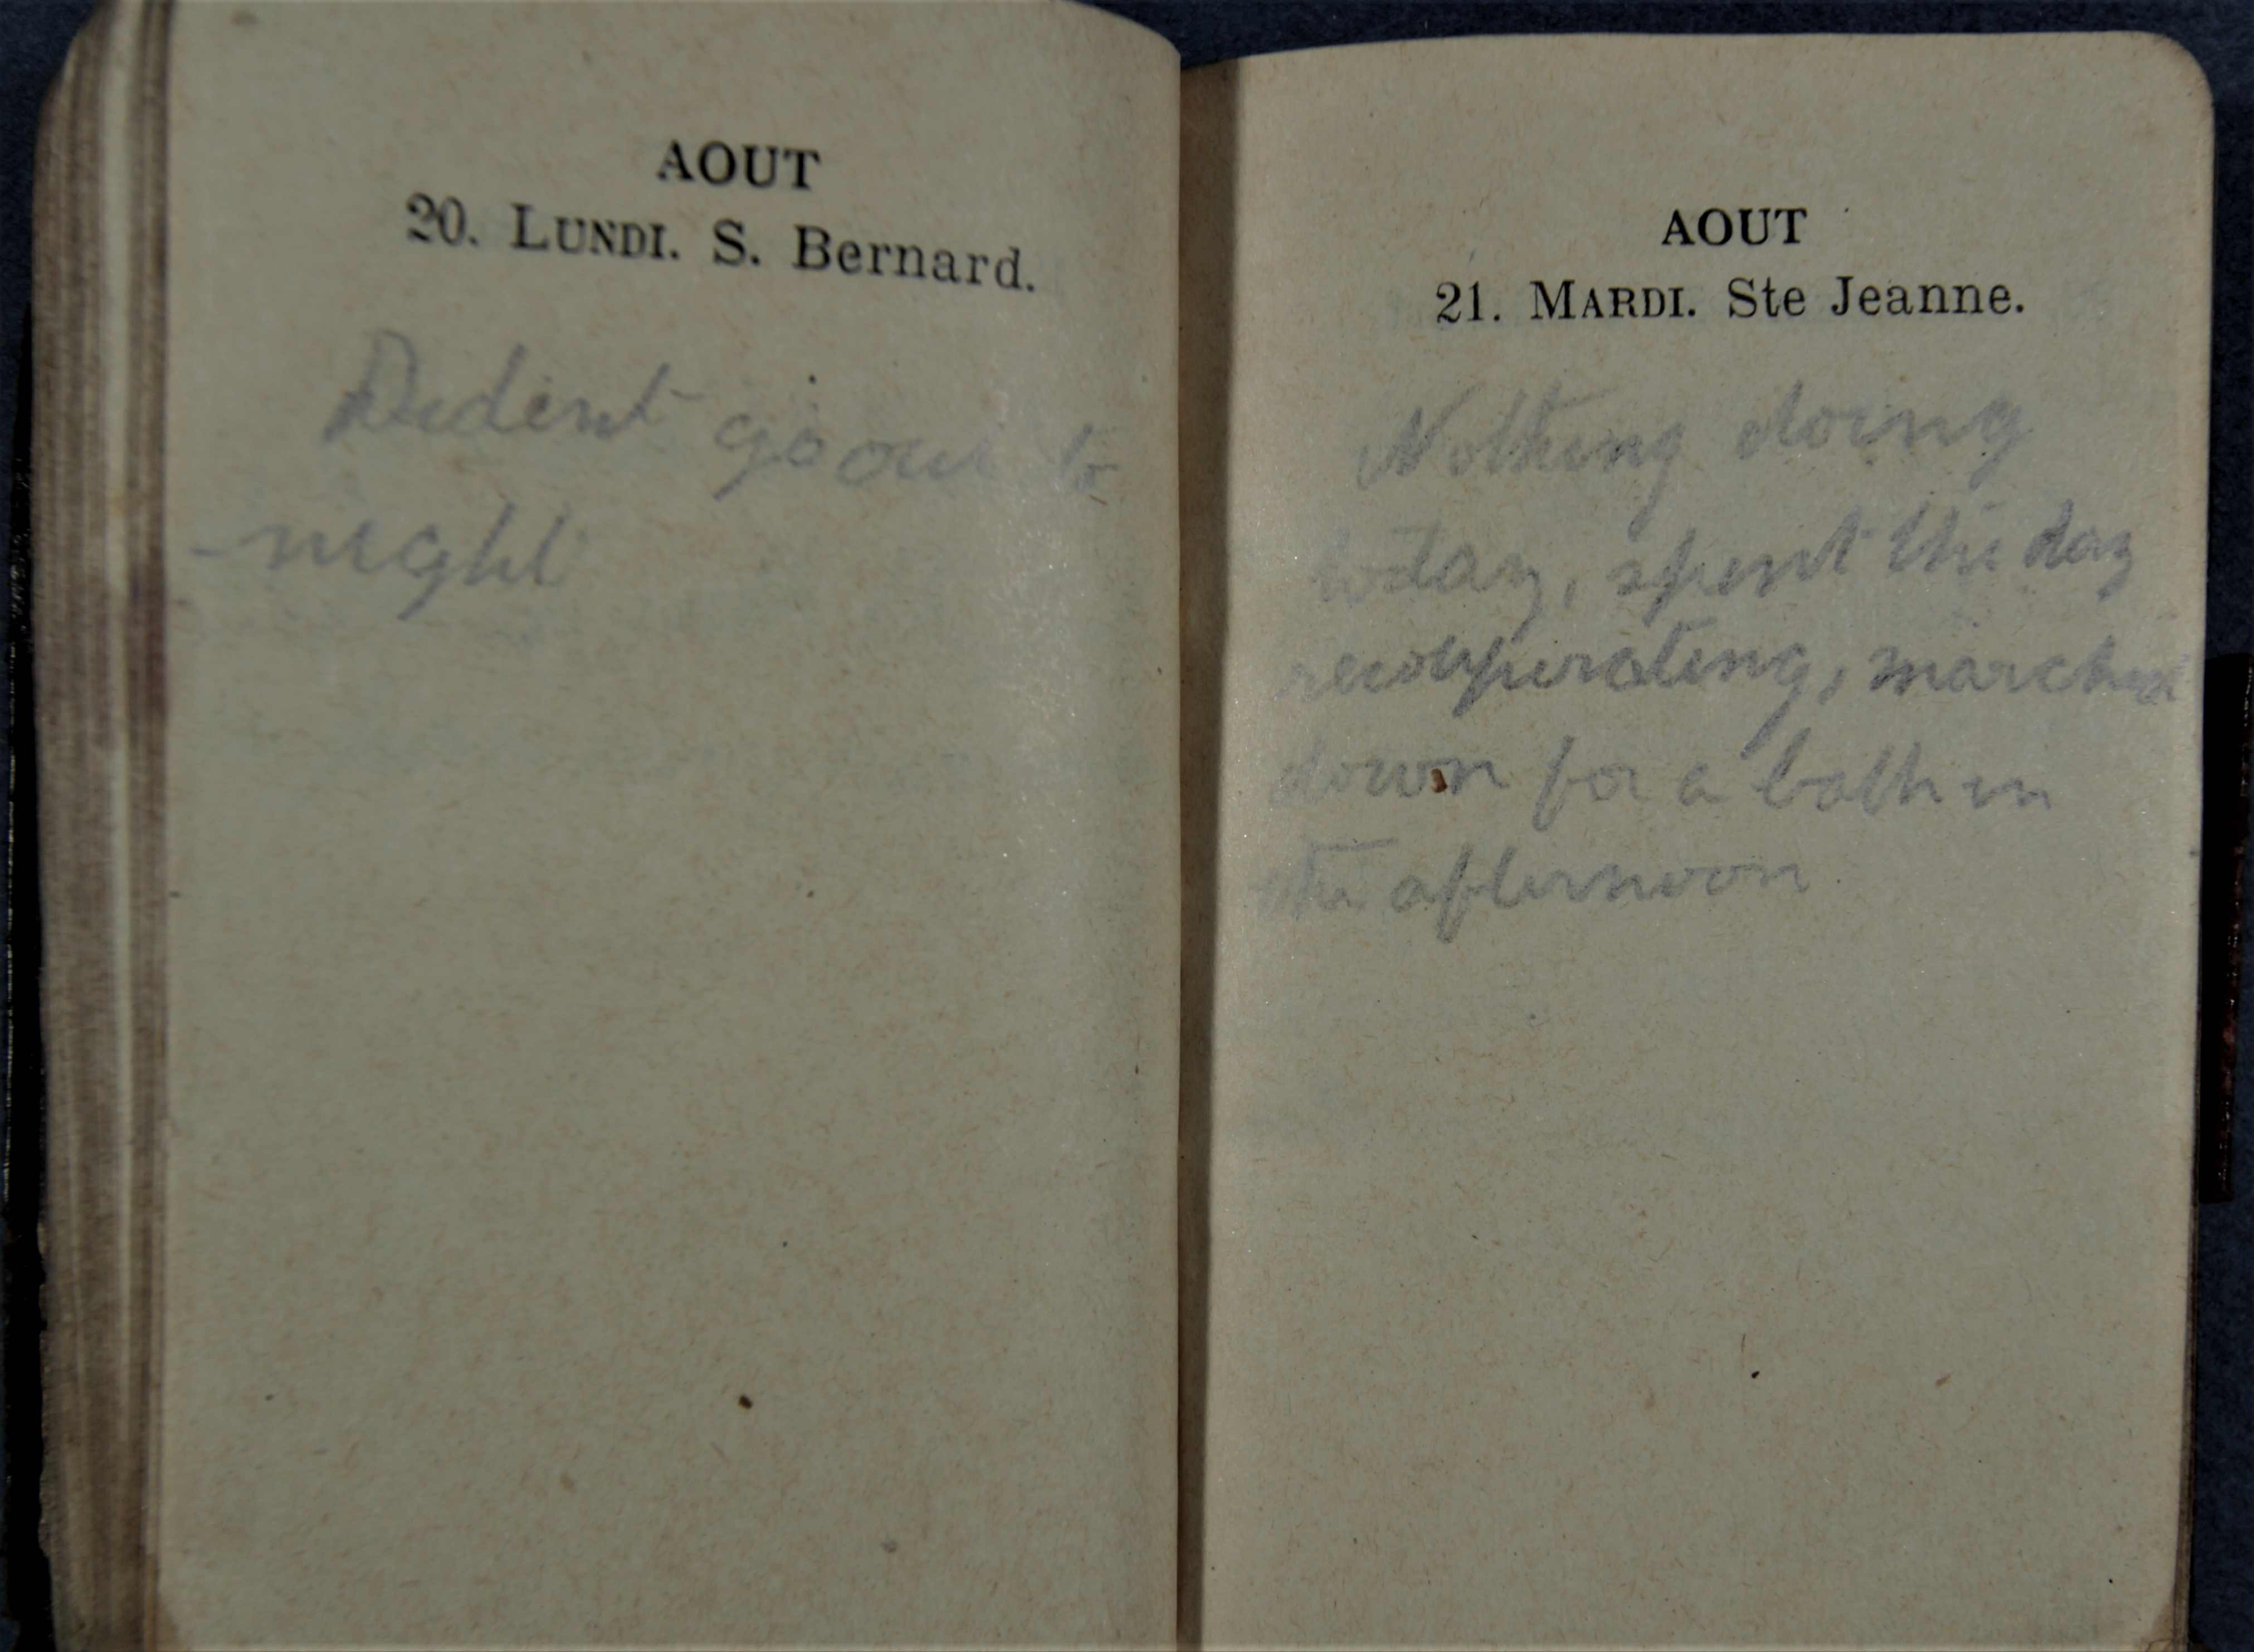 AOUT
20. LUNDI. S. Bernard.
Dident go out to
-night
AOUT
21. MARDI. Ste Jeanne.
Nothing doing
today, spent the day
recouperating, marched
down for a bath in
the afternoon